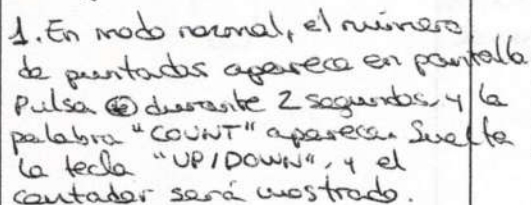 1. En modo normal, el número
de puntadas aparece en pantalla
Pulsa durante 2 segundos, y la
palabra "COUNT" aparece. Suelta
la tecla "UP/DOWN", y el
contador será mostrado.